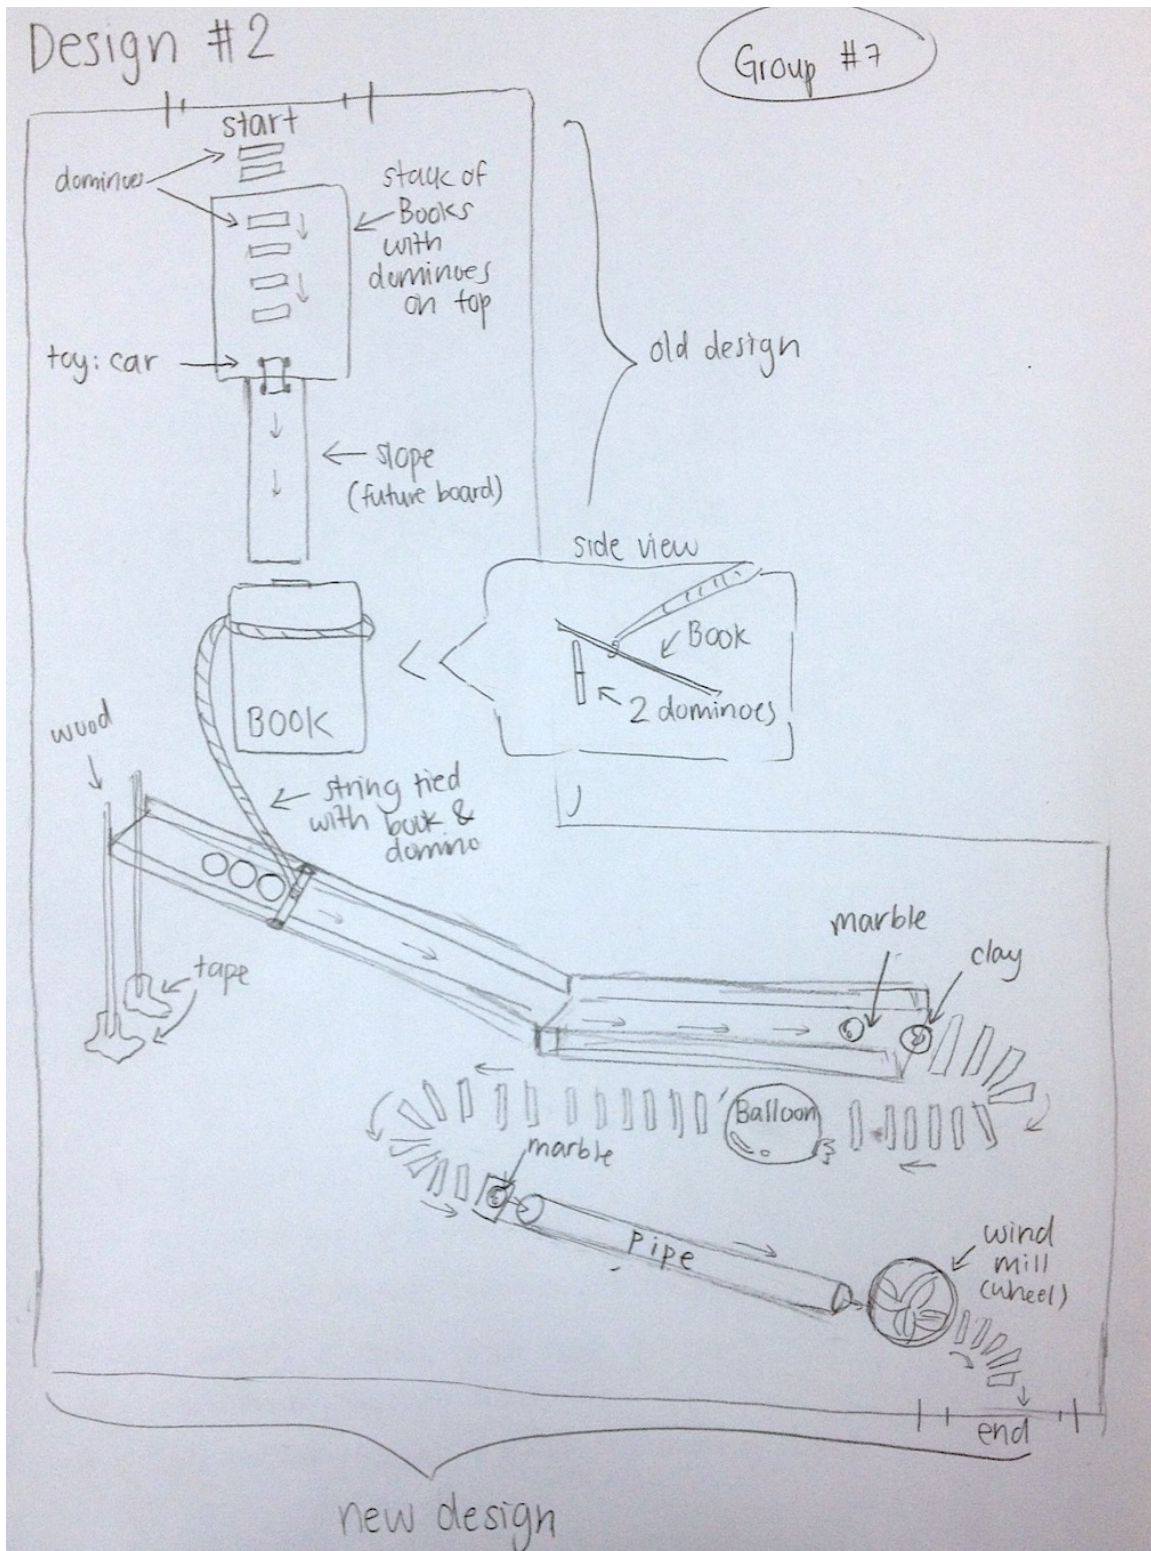 Design #2
Group #7
start
dominoes
stack of
Books
with
dominoes
on top
toy: car
old design
slope
(future board)
side view
Book
2 dominoes
BOOK
wood
string tied
with book &
domino
tape
marble
clay
Balloon
marble
Pipe
wind
mill
(wheel)
end
new design